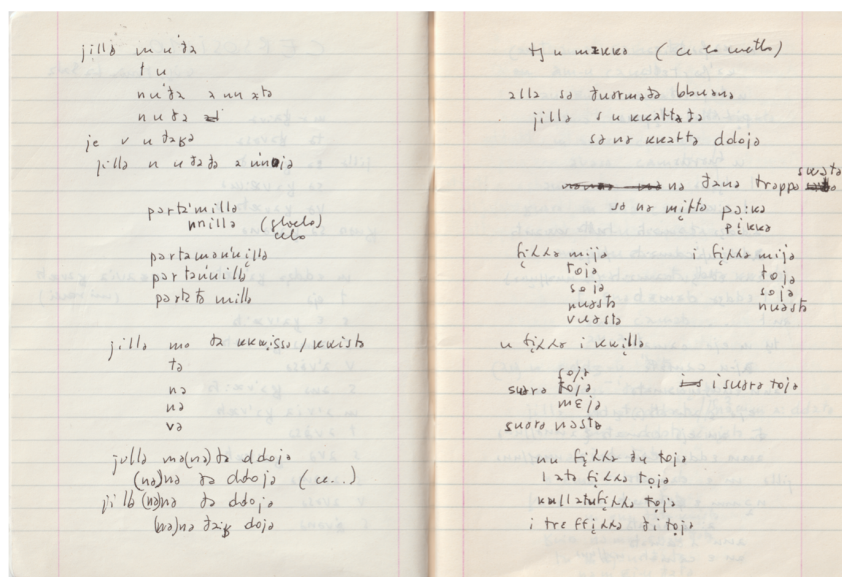 jillə m u ðə
t u
nu'ðə annatə
nuðə
je v u ðəʒə
jillə n u ðəðə aninəjə
partə'millə
nnillə (gloclo)
celo
partəmən'nillə
partən'nillə
partətə millə
jillə mə ðə kkwissə / kkistə
tə
nə
nə
və
jullə mə(nə)ðə ddojə
(nə)nə ðə ddojə (ce...)
jillə (nə)nə ðə ddojə
(nə)nə ðə dojə
tʃ u məkkə (ce lo metto)
allə sə ðurmətə bbuənə
jillə s u kkattəðə
sə nə kkattə ddojə
swətə
nə ðənə trappə
sə nə mittə pəikə
pikkə
fiʎʎə mijə i fiʎʎə mijə
tojə toje
sojə sojə
nuəstə nuəstə
vuəstə
u fiʎʎə i kwillə
sojə
suərə tojə i suərə tojə
mɛjə
suərə nəstə
nu fiʎʎə ðu tojə
l atə fiʎʎə tojə
kullatufiʎʎə tojə
i tre ffiʎʎə ði tojə